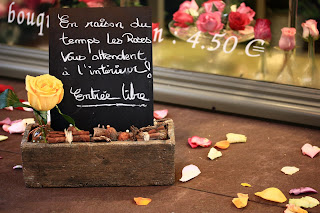 bouq
. 4.50 €
En raison du
temps les Roses
Vous attendent
à l'intérieur!
Entrée libre